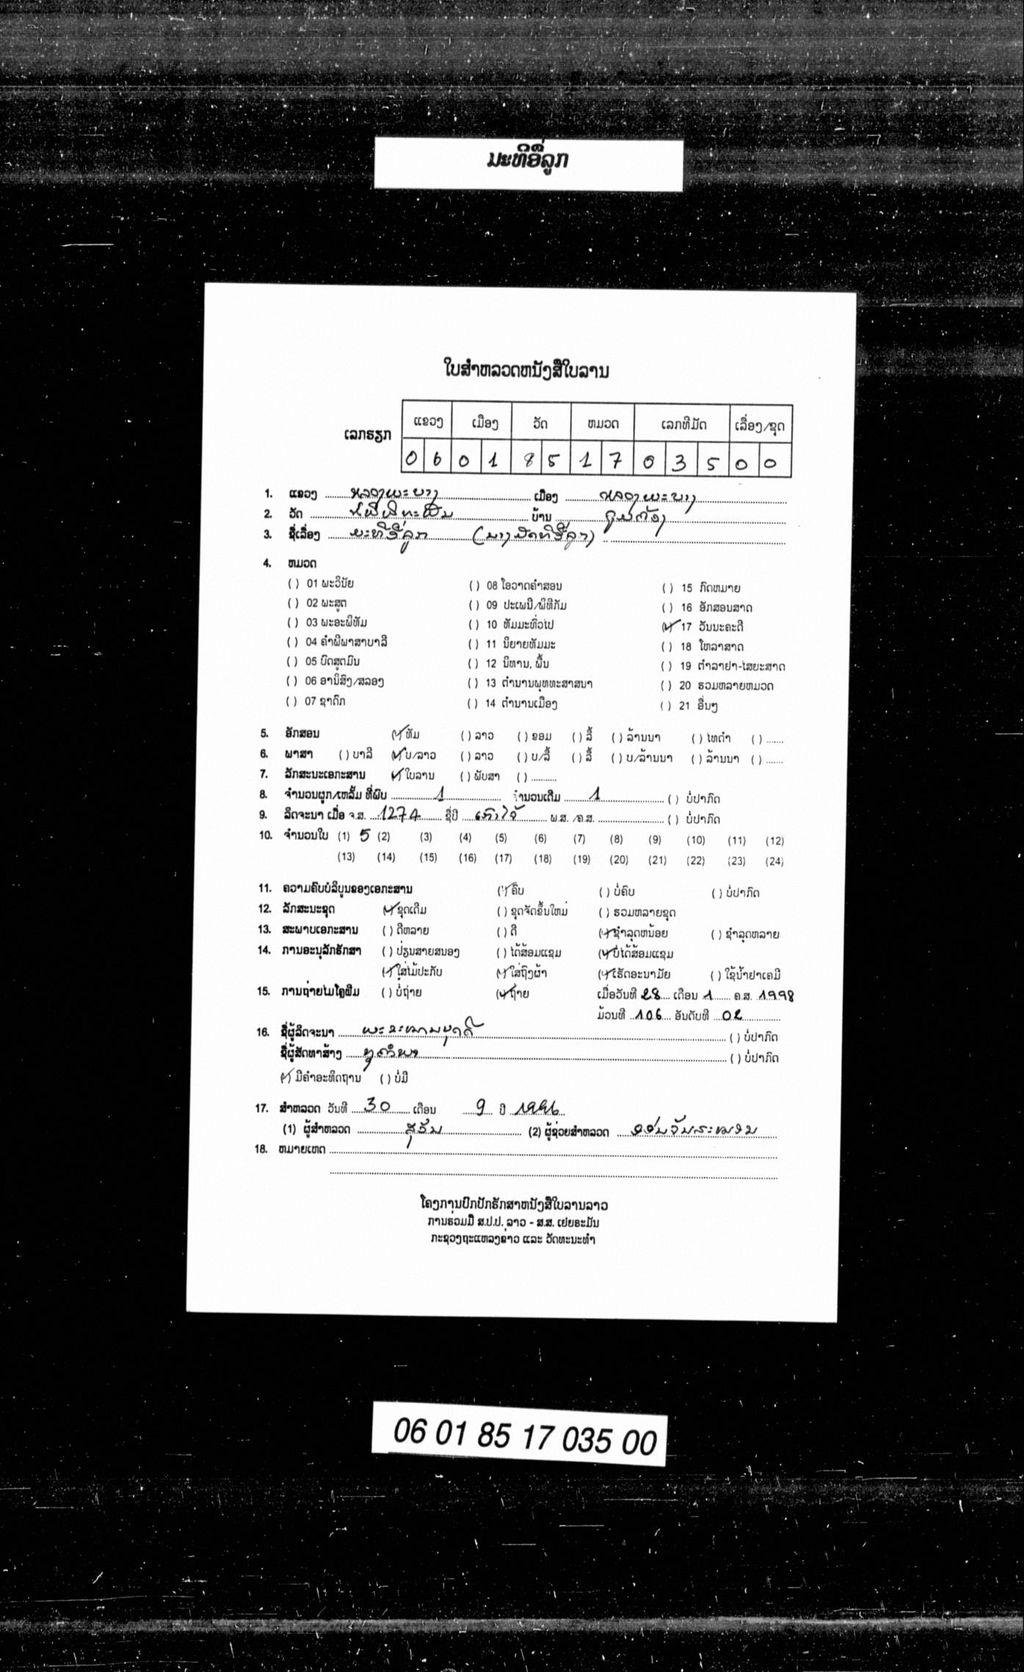 ມະທິອີ່ລູກ
ໃບສຳຫລວດຫນັງສືໃບລານ
ເລກຣຽກ
ແຂວງ ເມືອງ ວັດ ຫມວດ ເລກທີມັດ ເລື່ອງ/ຊຸດ
0 6 0 1 8 5 1 7 0 3 5 0 0
1. ແຂວງ ຫລວງພະບາງ ເມືອງ ຫລວງພະບາງ
2. ວັດ ຫໍພິພິທະພັນ ບ້ານ
3. ຊື່ເລື່ອງ ມະທິອີ່ລູກ
4. ຫມວດ
( ) 01 ພະວິນັຍ ( ) 08 ໂອວາດຄຳສອນ ( ) 15 ກົດຫມາຍ
( ) 02 ພະສູດ ( ) 09 ປະເພນີ/ພິທີກັມ ( ) 16 ອັກສອນສາດ
( ) 03 ພະອະພິທັມ ( ) 10 ທັມມະທົ່ວໄປ (✓) 17 ວັນນະຄະດີ
( ) 04 ຄຳພີພາສາບາລີ ( ) 11 ນິຍາຍທັມມະ ( ) 18 ໂຫລາສາດ
( ) 05 ບົດສູດມົນ ( ) 12 ນິທານ, ພື້ນ ( ) 19 ຕຳລາຢາ-ໄສຍະສາດ
( ) 06 ອານິສົງ/ສລອງ ( ) 13 ຕຳນານພຸທທະສາສນາ ( ) 20 ຮວມຫລາຍຫມວດ
( ) 07 ຊາດົກ ( ) 14 ຕຳນານເມືອງ ( ) 21 ອື່ນໆ
5. ອັກສອນ (✓) ທັມ ( ) ລາວ ( ) ຂອມ ( ) ລື້ ( ) ລ້ານນາ ( ) ໄທດຳ ( ) ......
6. ພາສາ ( ) ບາລີ (✓) ບ/ລາວ ( ) ລາວ ( ) ບ/ລື້ ( ) ລື້ ( ) ບ/ລ້ານນາ ( ) ລ້ານນາ ( ) ......
7. ລັກສະນະເອກະສານ (✓) ໃບລານ ( ) ພັບສາ ( ) .........
8. ຈຳນວນຜູກ/ເຫລັ້ມ ທີ່ພົບ 1 ຈຳນວນເຕີມ 1 ( ) ບໍ່ປາກົດ
9. ລິດຈະນາ ເມື່ອ ຈ.ສ. 1274 ຊື່ປີ ເຕົ່າໃຈ້ ພ.ສ. /ຄ.ສ. ( ) ບໍ່ປາກົດ
10. ຈຳນວນໃບ (1) 5 (2) (3) (4) (5) (6) (7) (8) (9) (10) (11) (12)
(13) (14) (15) (16) (17) (18) (19) (20) (21) (22) (23) (24)
11. ຄວາມຄົບບໍລິບູນຂອງເອກະສານ (✓) ຄົບ ( ) ບໍ່ຄົບ ( ) ບໍ່ປາກົດ
12. ລັກສະນະຊຸດ (✓) ຊຸດເດີມ ( ) ຊຸດຈັດຂຶ້ນໃຫມ່ ( ) ຮວມຫລາຍຊຸດ
13. ສະພາບເອກະສານ ( ) ດີຫລາຍ ( ) ດີ (✓) ຊຳລຸດຫນ້ອຍ ( ) ຊຳລຸດຫລາຍ
14. ການອະນຸລັກຮັກສາ ( ) ປ່ຽນສາຍສນອງ ( ) ໄດ້ສ້ອມແຊມ (✓) ບໍ່ໄດ້ສ້ອມແຊມ
(✓) ໃສ່ໄມ້ປະກັບ (✓) ໃສ່ຖົງຜ້າ (✓) ເຮັດອະນາມັຍ ( ) ໃຊ້ນ້ຳຢາເຄມີ
15. ການຖ່າຍໄມໂຄຼຟີມ ( ) ບໍ່ຖ່າຍ (✓) ຖ່າຍ ເມື່ອວັນທີ 28 ເດືອນ 1 ຄ.ສ. 1998
ມ້ວນທີ 106 ອັນດັບທີ 02
16. ຊື່ຜູ້ລິດຈະນາ ( ) ບໍ່ປາກົດ
ຊື່ຜູ້ສັດທາສ້າງ ( ) ບໍ່ປາກົດ
(✓) ມີຄຳອະທິດຖານ ( ) ບໍ່ມີ
17. ສຳຫລວດ ວັນທີ 30 ເດືອນ 9 ປີ 1996
(1) ຜູ້ສຳຫລວດ (2) ຜູ້ຊ່ວຍສຳຫລວດ
18. ຫມາຍເຫດ
ໂຄງການປົກປັກຮັກສາຫນັງສືໃບລານລາວ
ການຮ່ວມມື ສ.ປ.ປ. ລາວ - ສ.ສ. ເຢຍຣະມັນ
ກະຊວງຖະແຫລງຂ່າວ ແລະ ວັດທະນະທຳ
06 01 85 17 035 00